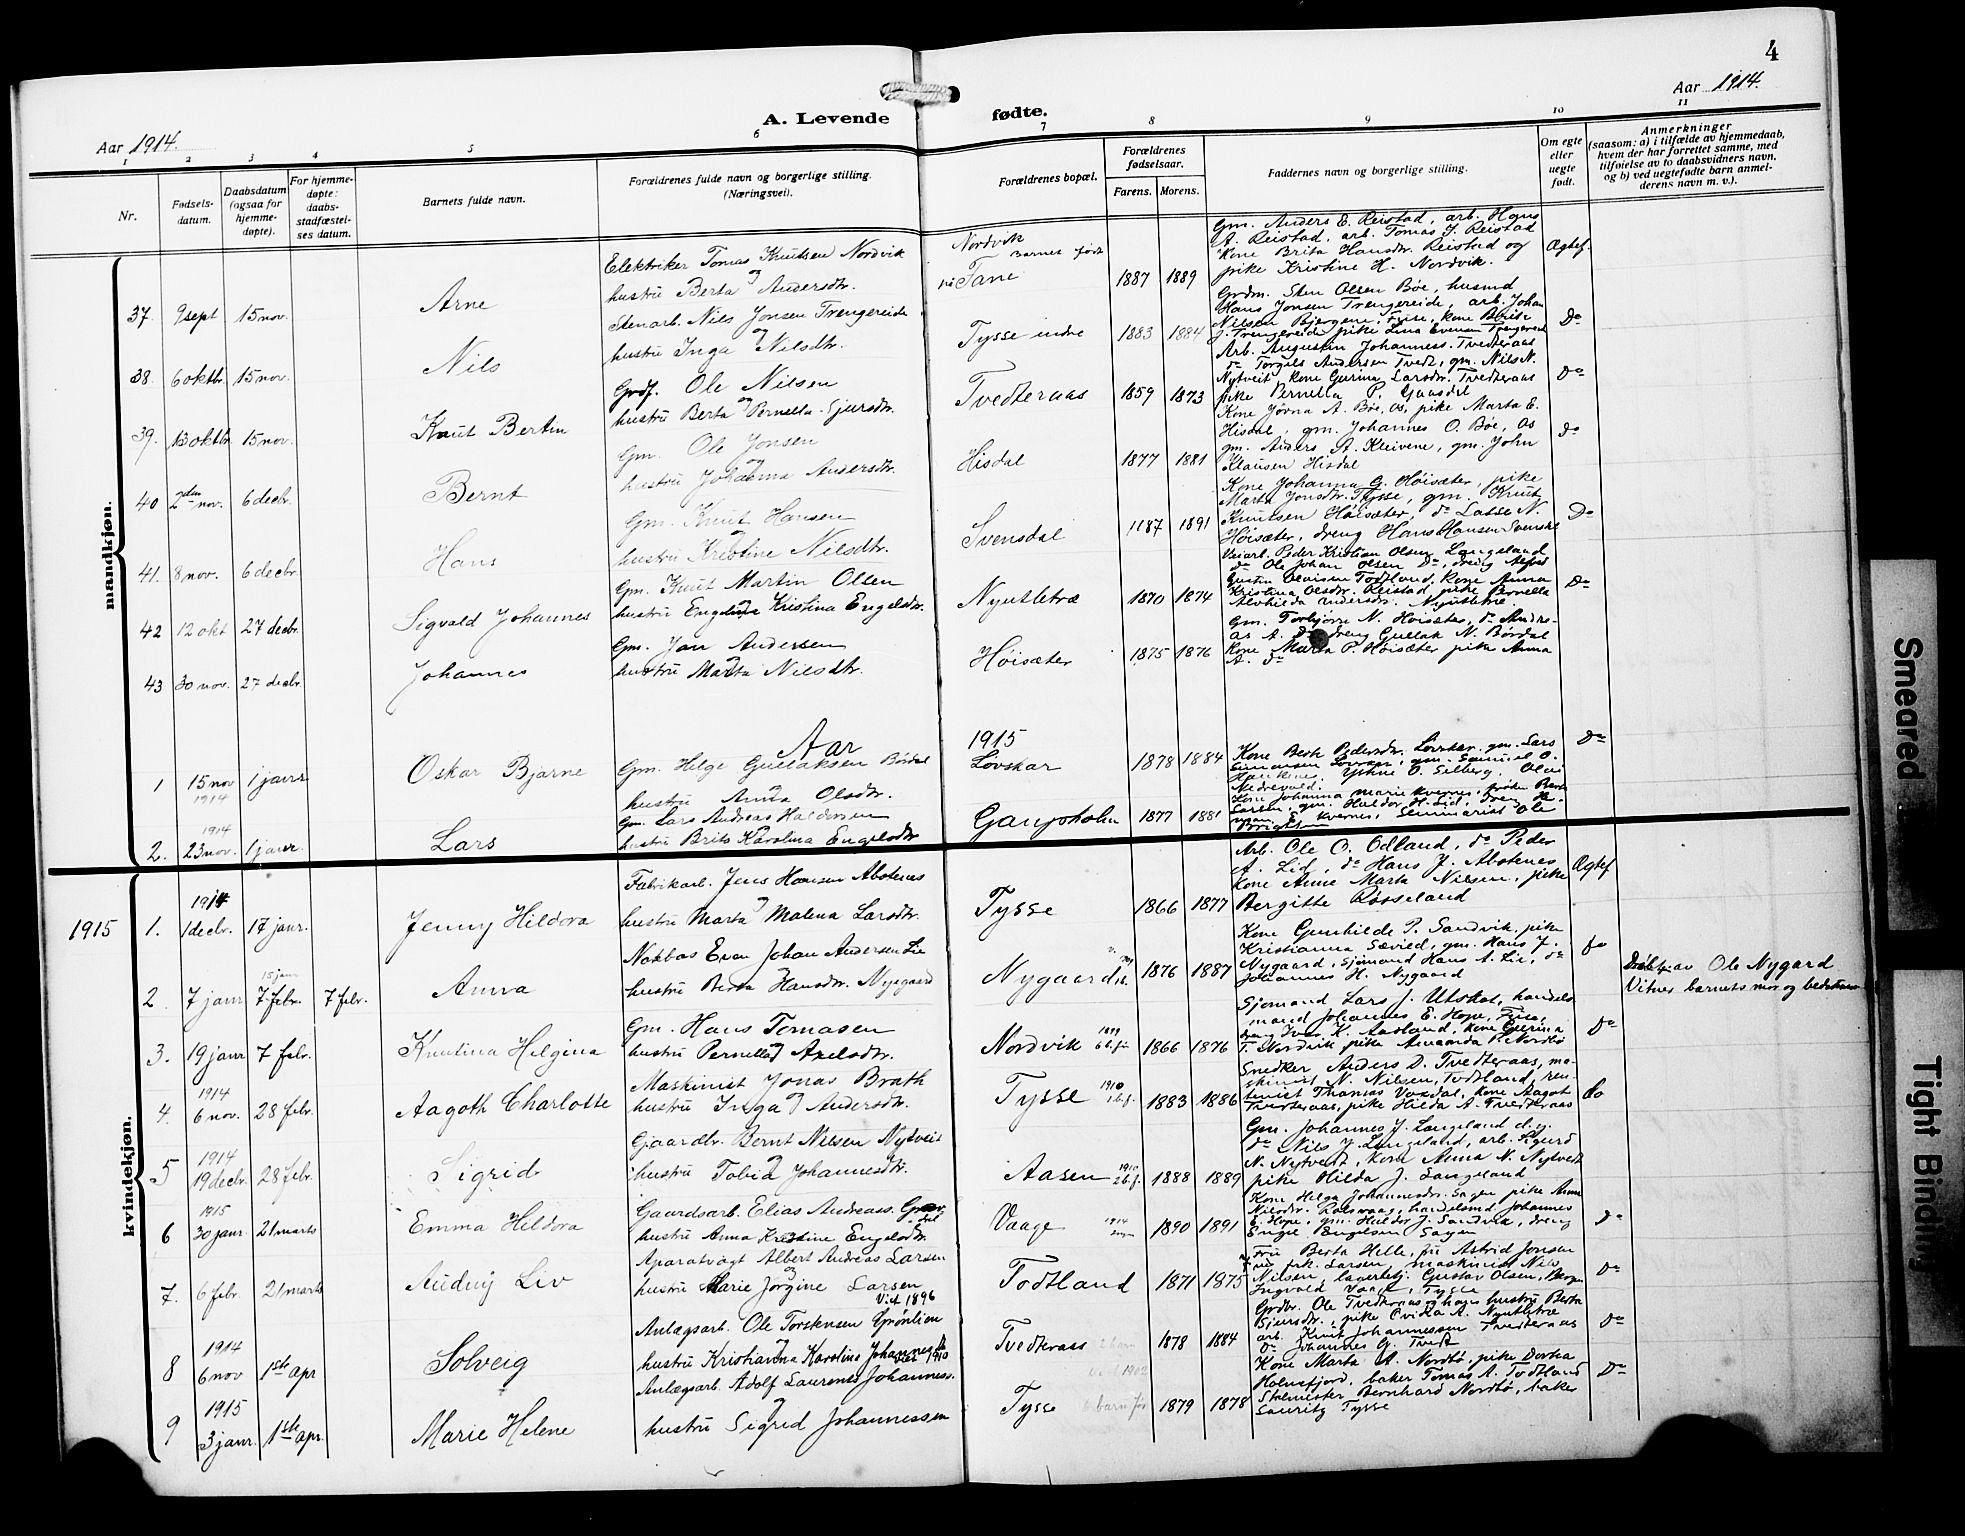 4
Aar 1914.
A. Levende
fødte.
Aar 1914.
1 2 3 4 5 6 7 8 9 10 11
Nr.
Fødsels-
datum.
Daabsdatum
(ogsaa for
hjemme-
døpte).
For hjemme-
døpte:
daabs-
stadfæstel-
ses datum.
Barnets fulde navn.
Forældrenes fulde navn og borgerlige stilling.
(Næringsvei).
Forældrenes bopæl.
Forældrenes
fødselsaar.
Farens. Morens.
Faddernes navn og borgerlige stilling.
Om egte
eller
uegte
født.
Anmerkninger
(saasom: a) i tilfælde av hjemmedaab,
hvem der har forrettet samme, med
tilføielse av to daabsvidners navn,
og b) ved uegtefødte barn anmel-
derens navn m. v.).
mandkjøn.
37. 9 sept 15 nov. Arne
Elektriker Tomas Knutsen Nordvik
og
hustru Berta Andersdtr.
Nordvik
Barnet født
i Fane
1887 1889
Gm. Anders E. Reistad, arb. Hans
A. Reistad, arb. Tomas J. Reistad
Kone Brita Hansdtr. Reistad og
pike Kristine H. Nordvik.
Ægtef.
38. 6 oktbr. 15 nov. Nils
Stenarb. Nils Jonsen Trengereide
og
hustru Inga Nilsdtr.
Tysse indre
1883 1884
Grdm. Sten Olsen Bøe, husmd
Hans Jonsen Trengereide, arb. Johan
Do
39. 13 oktbr 15 nov. Knut Bertin
Grdf. Ole Nilsen
og
hustru Berta Pernella Sjursdtr.
Tvedteraas
1859 1873
Arb. Augustin Johanness. Tvedteraas
do Torgils Andersen Tvedt, gm. Nils N.
Nytveit kone Gurina Larsdtr. Tvedteraas
pike Pernella P. Gaasdal
Do
40 2den nov. 6 decbr. Bernt
Gm. Ole Jonsen
og
hustru Johanna Andersdtr.
Hisdal
1877 1881
Kone Jørna A. Bøe, Os, pike Marta E.
Hisdal, gm. Johannes O. Bøe, Os
gm. Anders A. Kleivene, gm. John
Klausen Hisdal
Do
41. 8 nov. 6 decbr. Hans
Gm. Knut Hansen
og
hustru Kristine Nilsdtr.
Svensdal
1187 1891
Kone Johanna G. Høisæter, pike
Marta Jonsdtr. Tysse, gm. Knut
Knutsen Høisæter, do Lasse N.
Høisæter, dreng Hans Hansen
Do
42 12 okt 27 decbr. Sigvald Johannes
Gm. Knut Martin Olsen
hustru Engelina Kristina Engelsdtr.
Nyutletræ
1870 1874
Veiarb. Peder Kristian Olsen Langeland
do Ole Johan Olsen Do, dreng Alfred
Todland, Kone Anna
Kristina Olsdtr. Reistad pike Pernella
Alvhilda Andersdtr. Nyutletræ.
Do
43 30 nov. 27 decbr. Johannes
Gm. Jan Andersen
og
hustru Marta Nilsdtr.
Høisæter
1875 1876
Gm. Torbjørn N. Høisæter, do Andre-
as A. Do dreng Gullak N. Børdal
Kone Marta P. Høisæter pike Anna
A. Do
Aar 1915
1 15 nov 1914 1 januar Oskar Bjarne
Gm. Helge Gullaksen Børdal
og
hustru Anna Olsdtr.
Løvskar
1878 1884
Do
2. 1914 23 nov. 1 januar. Lars
Gm. Lars Andreas Haldorsen
hustru Brita Karolina Engelsdtr
Gaupholm
1877 1881
kvindekjøn.
1915
1. 1914 1 decbr. 17 januar. Jenny Hildora
Fabrikarb. Jens Hansen Abotenes
og
hustru Marta Malena Larsdtr.
Tysse
1866 1877
Arb. Ole O. Odland, do Peder
A. Lid, do Hans J. Abotenes
Kone Anne Marta Nilsen, pike
Bergitte Røsseland
Ægtef
2. 7 januar 15 januar 7 febr. 7 febr. Anna
Notbas Even Johan Andersen Lie
og
hustru Berta Hansdtr. Nygaard
Nygaard
1876 1887
Kone Gunhilde P. Sandvik, pike
Kristianna Sævild, gm. Hans J.
Nygaard, Sjømand Hans A. Lie, do
Johannes H. Nygaard
Do
Døbt av Ole Nygard
Vitner barnets mor og bedstemor
3. 19 januar 7 febr. Knutina Helgina
Gm. Hans Tomasen
og
hustru Pernella Axelsdtr.
Nordvik
1866 1876
Sjømand Lars J. Utskot, handels
mand Johannes E. Hope, Fusa,
Ivar K. Aasland, Kone Gurina
T. Nordvik pike Amanda P. Nordbø
Do
4. 1914 6 nov. 28 febr. Aagoth Charlotte
Maskinist Jonas Brath
og
hustru Inga Andersdtr.
Tysse 1910
1883 1886
Snedker Anders D. Tvedteraas, ma-
skinist N. Nilsen, Todtland,
Thomas Vaxdal, Kone Aagot
Tvedteraas, pike Hilda A. Tvedteraas
Do
5 1914 19 decbr. 28 febr. Sigrid
Gaardbr. Bernt Nilsen Nytveit
og
hustru Tobia Johannesdtr.
Aasen
1888 1889
Gm. Johannes J. Langeland d.y.
do Nils J. Langeland, arb. Sigurd
N. Nytvedt, Kone Anna N. Nytvedt
pike Hilda J. Langeland
6 1915 30 januar. 21 marts Emma Hildora
Gaardsarb. Elias Andreass.
hustru Anna Kristine Engelsdtr.
Vaage 1914
1890 1891
Kone Helga Johannesdtr. Sagen pike Anna
handelsmd Johannes
E. Hope, gm. Haldor J. Sandvik, dreng
Engel Engelsen Sagen
Do
7. 6 febr. 21 marts Audny Liv
Aparatvagt Albert Andreas Larsen
og
hustru Marie Jørgine Larsen
Viet 1896
Todtland
1871 1875
Fru Berta Helle, fru Astrid Jonsen
frk. Larsen, maskinist Nils
Nilsen, lagerbetj. Gustav Olsen, Bergen
Ingvald Vaage, Tysse
Do
8 1914 6 nov 1ste apr Solveig
Anlægsarb. Ole Torstensen Grønlien
og
hustru Kristianna Karolina
Tvedteraas
1878 1884
Grdbr. Ole Tvedteraas og hans hustru Berta
Sjursdtr., pike Ovidia A. Nyutletræ
arb. Knut Johannessen Tvedteraas
do Johannes G. Tvedt
Do
9 1915 3 januar. 1ste apr. Marie Helene
Anlægsarb. Adolf Laurents Johanness.
og
hustru Sigrid Johannessen
Tysse
1879 1878
Kone Marta A. Nordbø, pike Dortea
Holmefjord, baker Tomas A. Todtland
Stolmester Bernhard Nordbø, baker
Tysse
Do
Smeared
Tight Binding